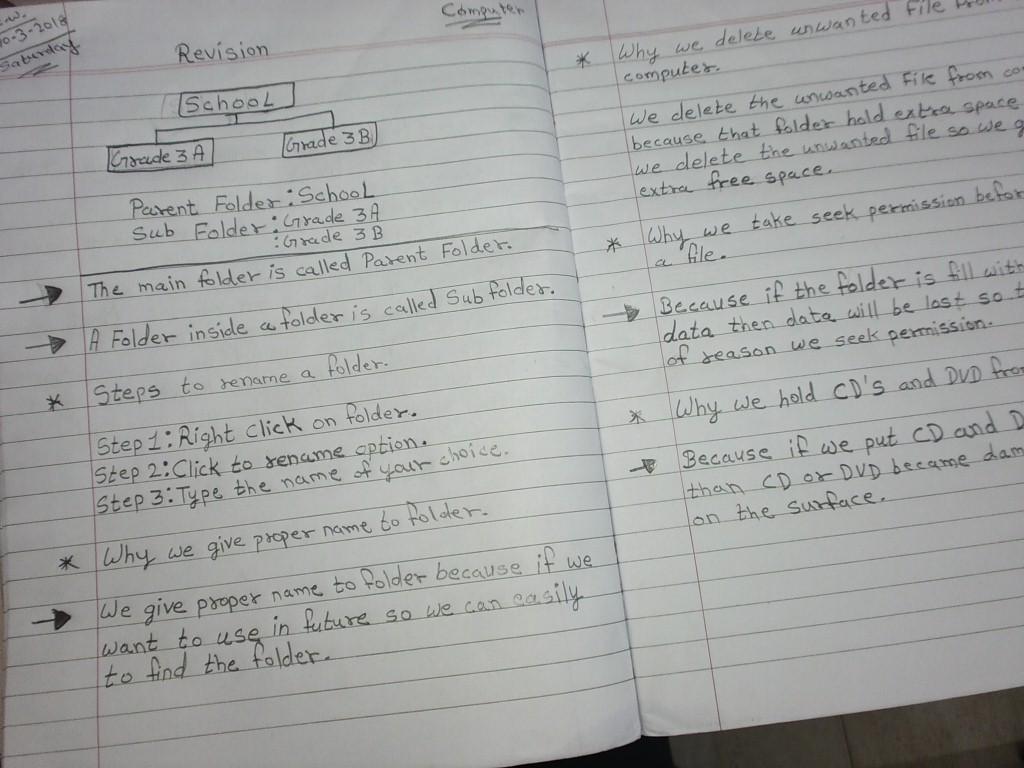 Saturday
Computer
Revision
School
Grade 3A
Grade 3B
Parent Folder : School
Sub Folder : Grade 3A
: Grade 3B
The main folder is called Parent Folder.
A Folder inside a folder is called Sub folder.
* Steps to rename a folder.
Step 1: Right Click on folder.
Step 2: Click to rename option.
Step 3: Type the name of your choice.
* Why we give proper name to folder.
We give proper name to folder because if we
want to use in future so we can easily
to find the folder.
* Why we delete unwanted file from
computer.
We delete the unwanted File from
because that folder hold extra space
we delete the unwanted file so we
extra free space.
* Why we take seek permission
a file.
Because if the folder is fill with
data then data will be lost so
of reason we seek permission.
* Why we hold CD's and DVD
Because if we put CD and
than CD or DVD became
on the surface.